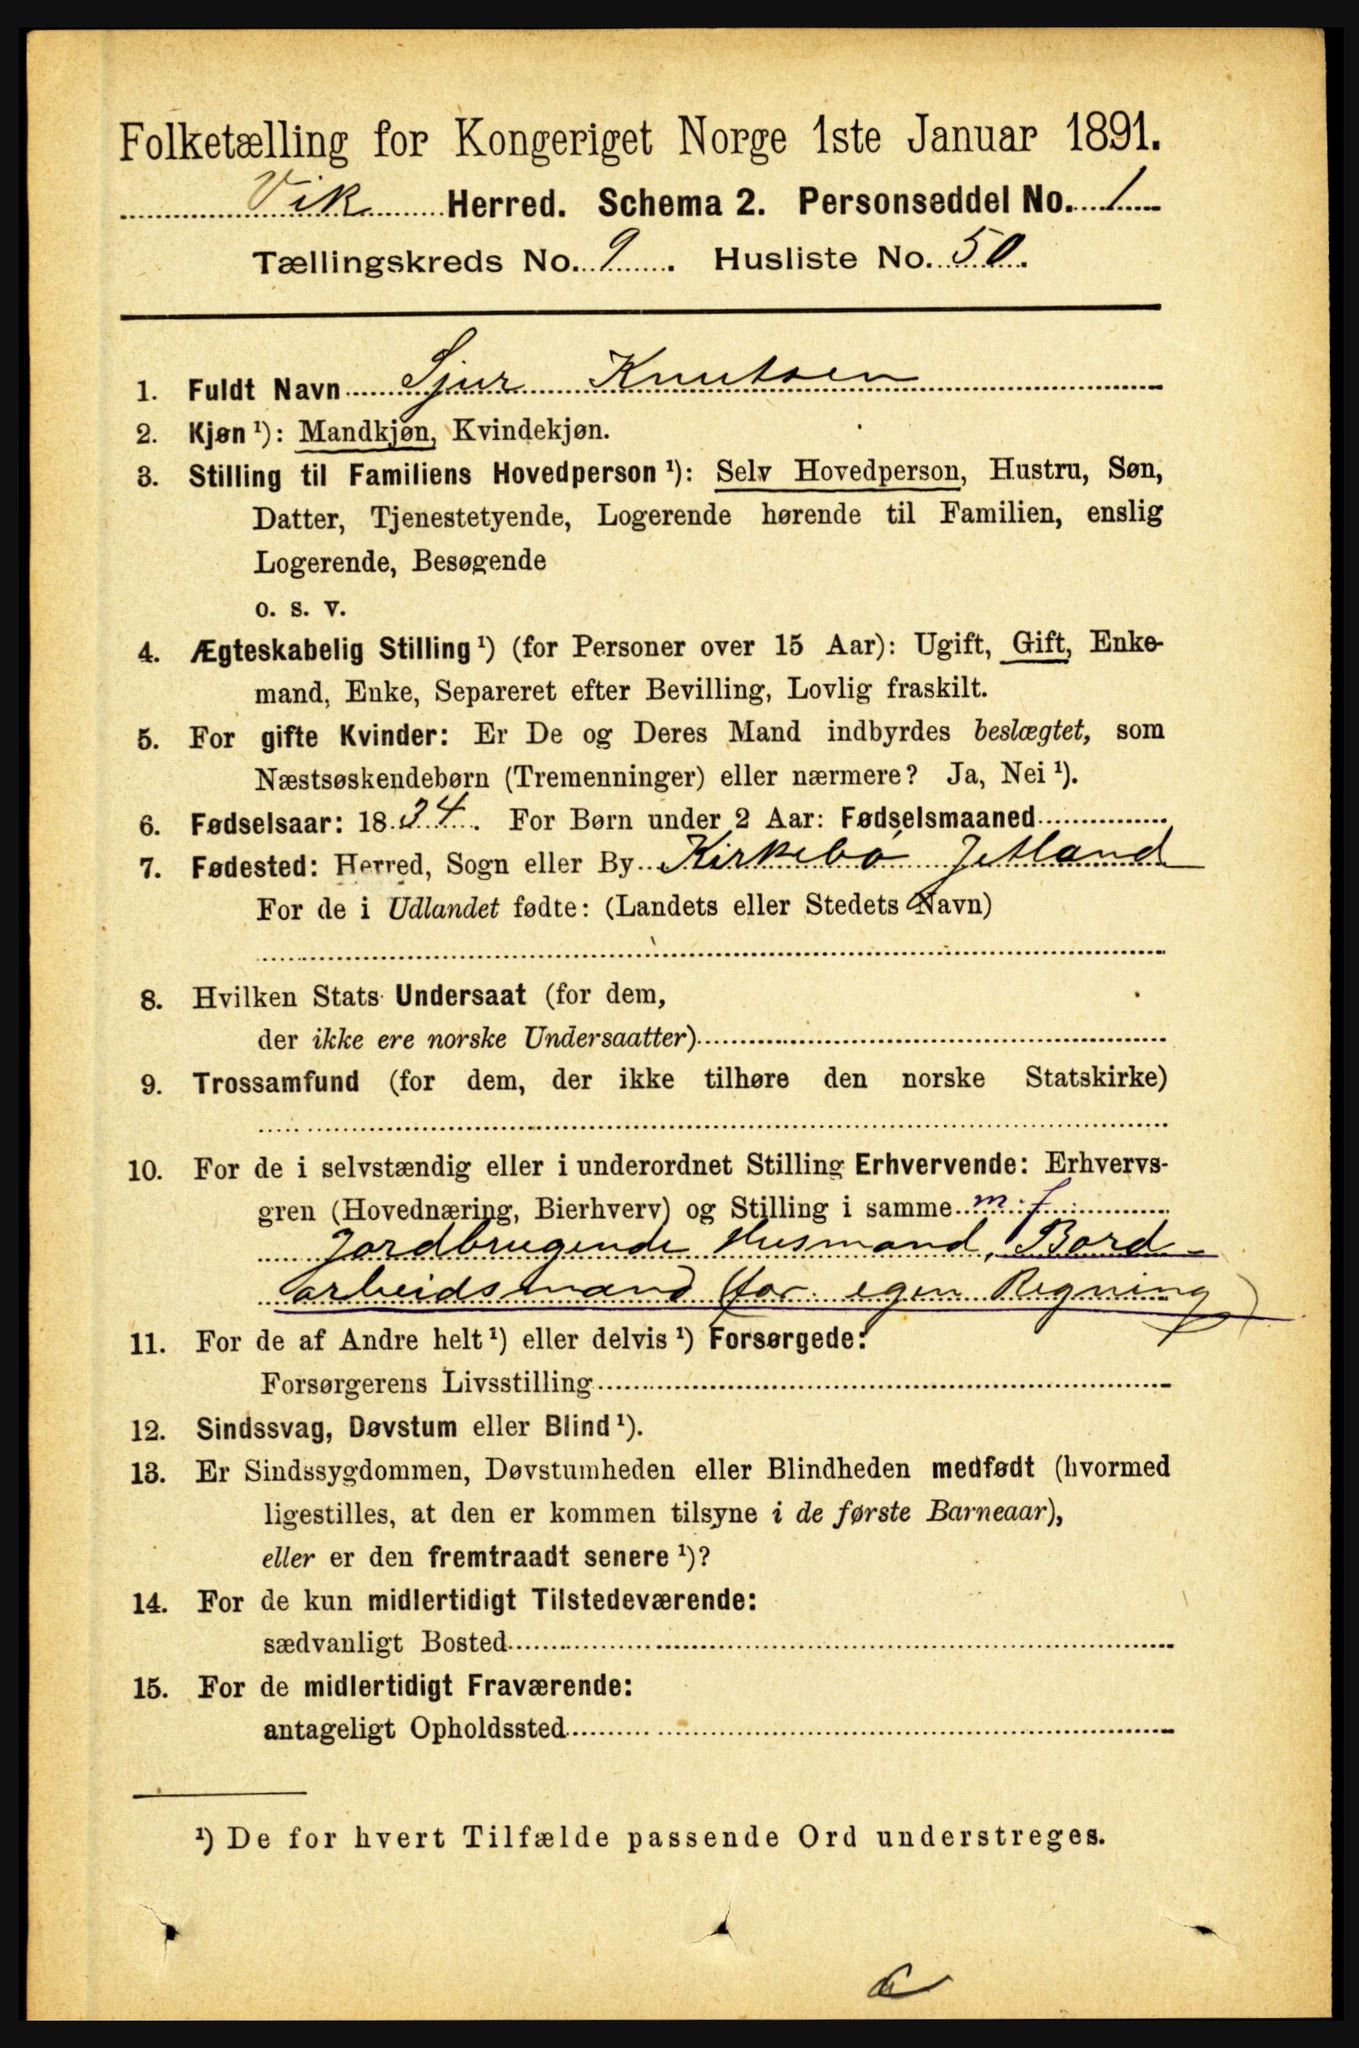 Folketælling for Kongeriget Norge 1ste Januar 1891.
Vik Herred. Schema 2. Personseddel No. 1
Tællingskreds No. 9. Husliste No. 50.
1. Fuldt Navn Sjur Knutsen
2. Kjøn¹): Mandkjøn, Kvindekjøn.
3. Stilling til Familiens Hovedperson¹): Selv Hovedperson, Hustru, Søn,
Datter, Tjenestetyende, Logerende hørende til Familien, enslig
Logerende, Besøgende
o. s. v.
4. Ægteskabelig Stilling¹) (for Personer over 15 Aar): Ugift, Gift, Enke-
mand, Enke, Separeret efter Bevilling, Lovlig fraskilt.
5. For gifte Kvinder: Er De og Deres Mand indbyrdes beslægtet, som
Næstsøskendebørn (Tremenninger) eller nærmere? Ja, Nei¹).
6. Fødselsaar: 1834. For Børn under 2 Aar: Fødselsmaaned
7. Fødested: Herred, Sogn eller By Kirkebø
For de i Udlandet fødte: (Landets eller Stedets Navn)
8. Hvilken Stats Undersaat (for dem,
der ikke ere norske Undersaatter)
9. Trossamfund (for dem, der ikke tilhøre den norske Statskirke)
10. For de i selvstændig eller i underordnet Stilling Erhvervende: Erhvervs-
gren (Hovednæring, Bierhverv) og Stilling i samme m. f.
Jordbrugende Husmand, Bord-
arbeidsmand (for egen Regning)
11. For de af Andre helt¹) eller delvis¹) Forsørgede:
Forsørgerens Livsstilling
12. Sindssvag, Døvstum eller Blind¹).
13. Er Sindssygdommen, Døvstumheden eller Blindheden medfødt (hvormed
ligestilles, at den er kommen tilsyne i de første Barneaar),
eller er den fremtraadt senere¹)?
14. For de kun midlertidigt Tilstedeværende:
sædvanligt Bosted
15. For de midlertidigt Fraværende:
antageligt Opholdssted
¹) De for hvert Tilfælde passende Ord understreges.